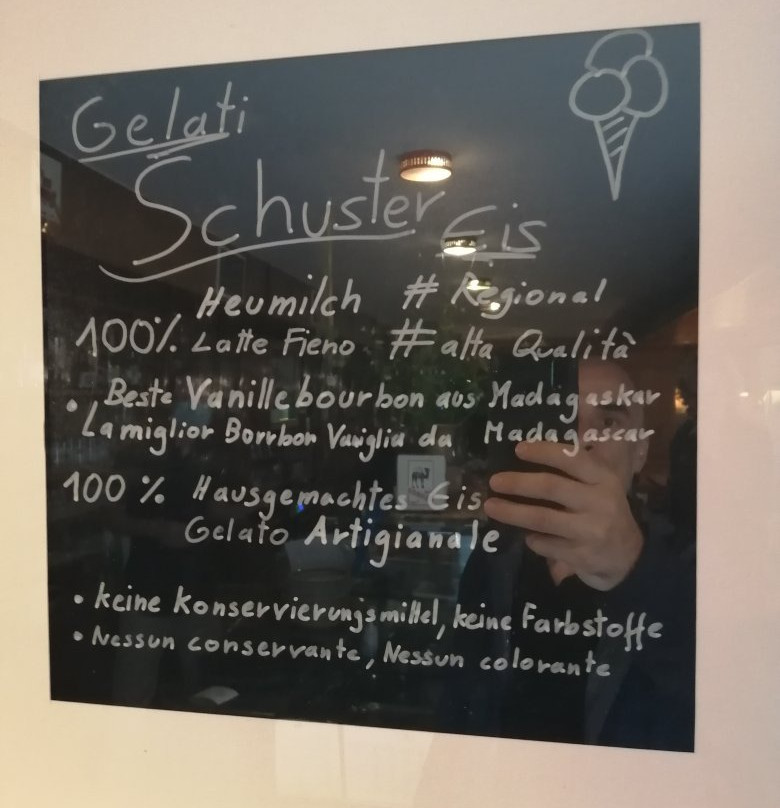 Gelati
Schuster Eis
Heumilch # Regional
100% Latte Fieno # alta Qualità
• Beste Vanillebourbon aus Madagaskar
La miglior Borrbon Vaniglia da Madagascar
100 % Hausgemachtes Eis
Gelato Artigianale
• keine Konservierungsmittel, keine Farbstoffe
• Nessun conservante, Nessun colorante